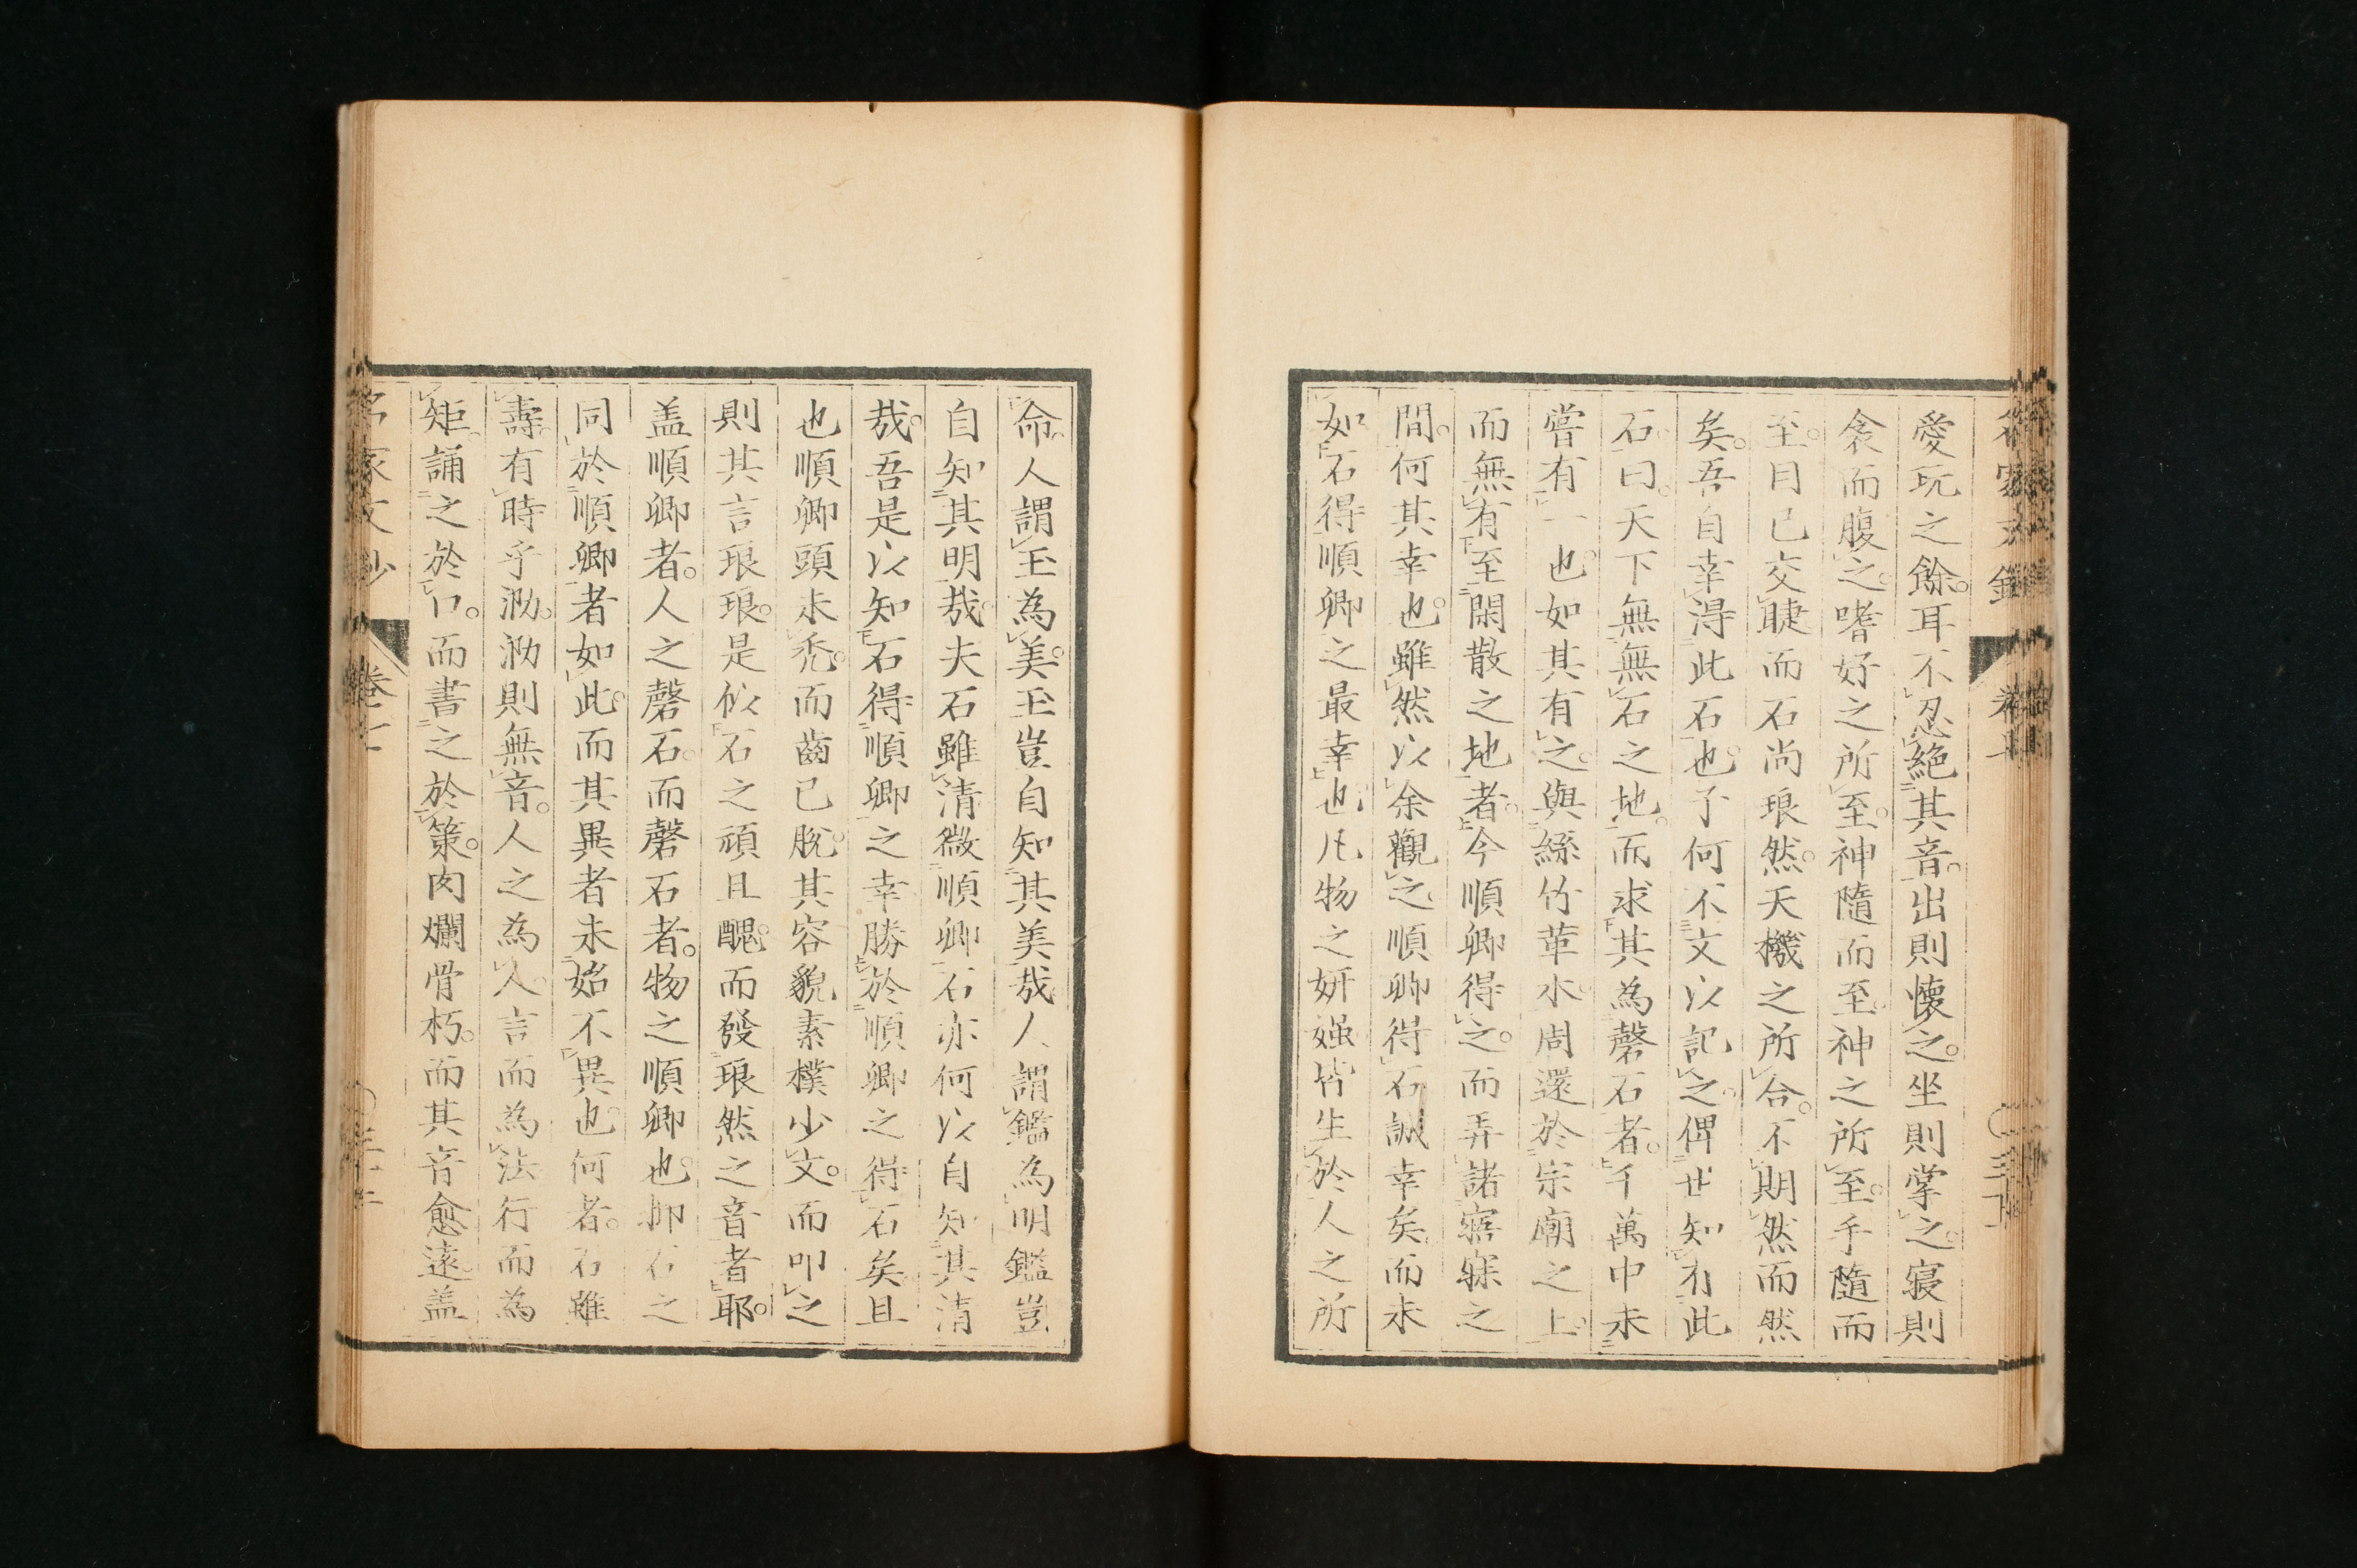 愛玩之餘。耳不忍絕其音。出則懷之。坐則掌之。寢則
衾而腹之。嗜好之所至。神隨而至。神之所至。手隨而
至。目已交睫而石尚琅然。天機之所合。不期然而然
矣。吾自幸得此石也。予何不文以記之。俾世知有此
石。曰。天下無無石之地。而求其為磬石者。千萬中未
嘗有一也。如其有之。與絲竹革水。周還於宗廟之上。
而無有至閑散之地者。今順卿得之。而弄諸寤寐之
間。何其幸也。雖然以余觀之。順卿得石誠幸矣。而未
如石得順卿之最幸也。凡物之妍媸皆生於人之所
命。人謂玉為美。玉豈自知其美哉。人謂鑑為明。鑑豈
自知其明哉。夫石雖清微。順卿石亦何以自知其清
哉。吾是以知石得順卿之幸勝於順卿之得石矣。且
也順卿頭未禿。而齒已脫。其容貌素樸少文。而叩之
則其言琅琅。是似石之頑且醜。而發琅然之音者耶。
盖順卿者。人之磬石。而磬石者。物之順卿也。抑石之
同於順卿者如此。而其異者未始不異也。何者。石雖
壽。有時乎泐。泐則無音。人之為人。言而為法行而為
矩。誦之於口。而書之於策。肉爛骨朽。而其音愈遠。盖
名家文抄 卷七